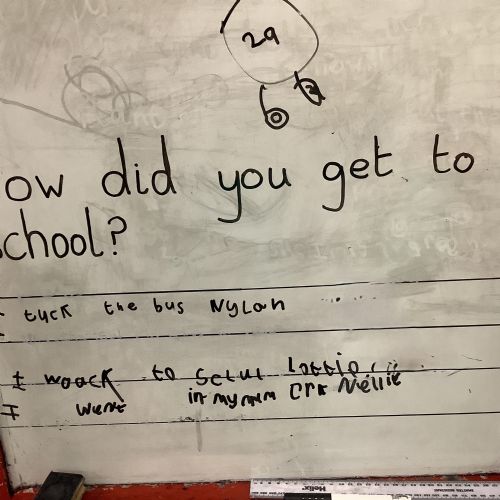 29
ow did you get to
school?
I tuck the bus Nylah
I woock to scful Lottio
I went in my mum Crr Nellie
Helix